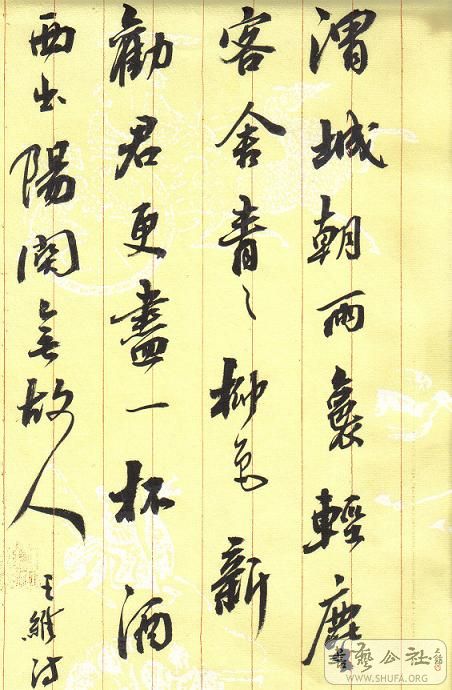 渭城朝雨裛輕塵
客舍青々柳色新
勸君更盡一杯酒
西出陽関無故人 王維詩
書藝公社
WWW.SHUFA.ORG